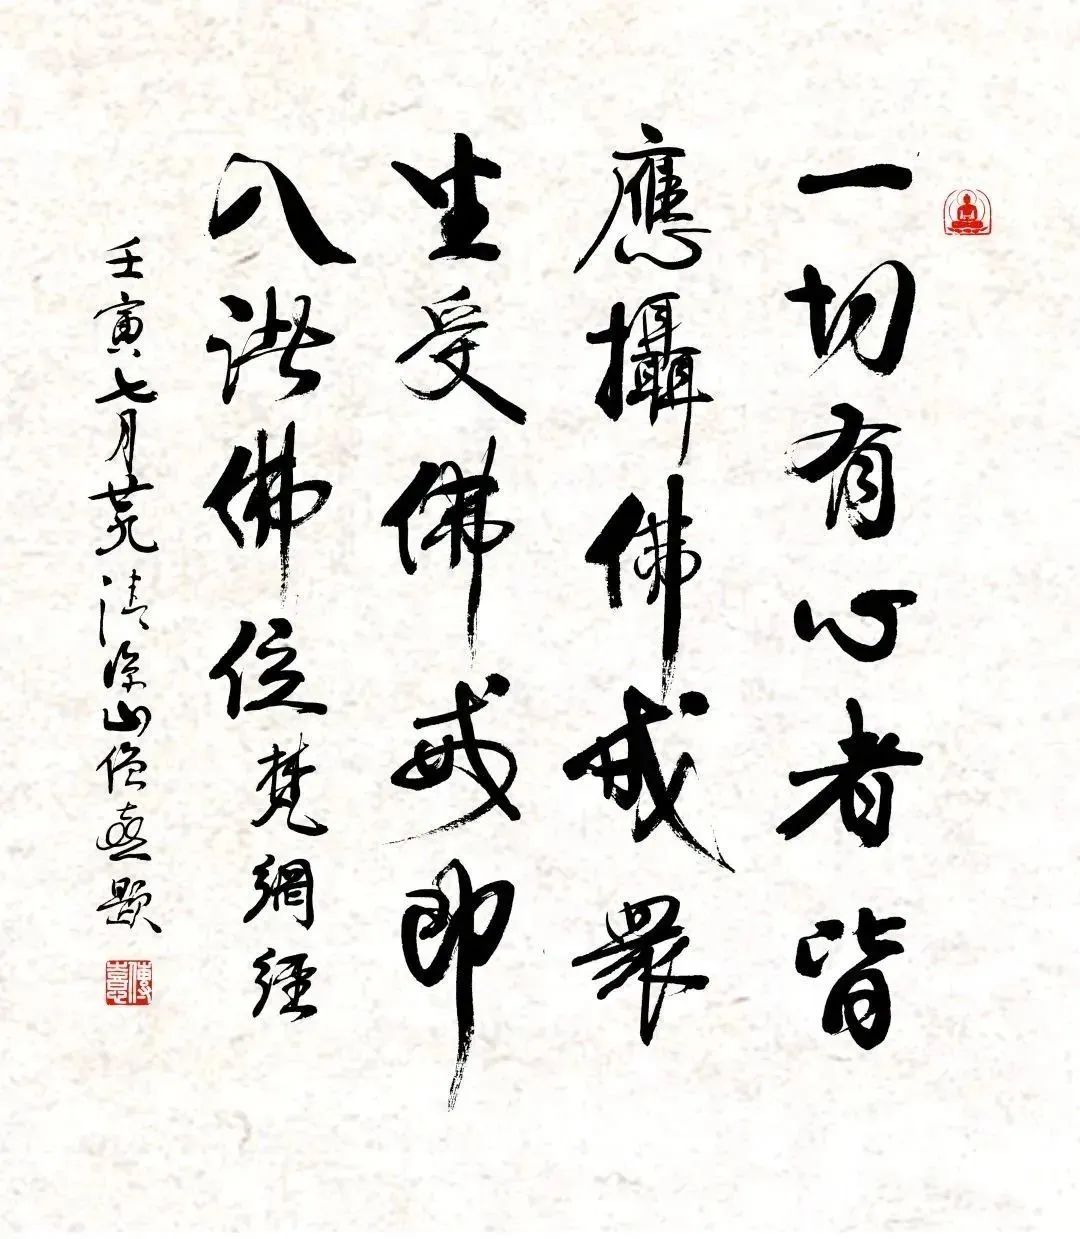 一切有心者皆
應攝佛戒眾
生受佛戒即
入諸佛位 梵網經
壬寅七月清涼山僧憙題
傳憙